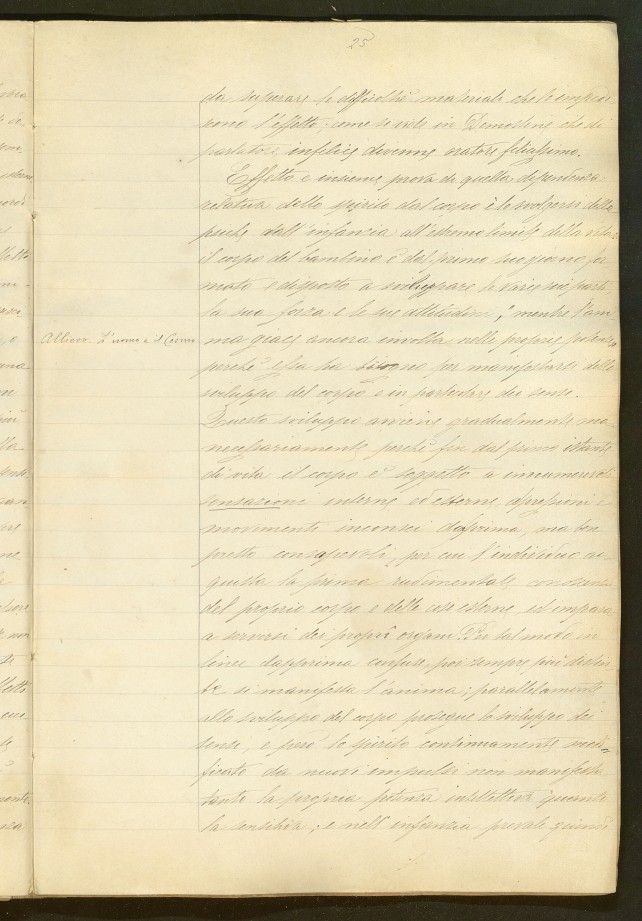 25
da superare le difficoltà materiali che le impedi
scono l'effetto: come si vede in Demostene che di
parlatore infelice divenne oratore
Effetto e insieme prova di quella dipendenza
relativa dello spirito dal corpo è lo svolgersi della
psiche dall'infanzia all'estremo limite della vita:
il corpo del bambino è dal primo suo giorno for
mato e disposto a sviluppare le varie sue parti
la sua forza e le sue attitudini, mentre l'ani
Allievo. L'uomo e il Cosmo
ma giace ancora involta nelle proprie potenze
perchè essa ha bisogno per manifestarsi dello
sviluppo del corpo e in particolare dei sensi.
Questo sviluppo avviene gradualmente ma
necessariamente perchè fin dal primo istante
di vita il corpo è soggetto a innumerevoli
sensazioni interne ed esterne, a pressioni e
movimenti inconsci dapprima, ma ben
presto consapevoli, per cui l'individuo ac
quista la prima rudimentale conoscenza
del proprio corpo e delle cose esterne, ed impara
a servirsi dei proprî organi. Per tal modo in
linee dapprima confuse, poi sempre più distin
te si manifesta l'anima; parallelamente
allo sviluppo del corpo prosegue lo sviluppo dei
sensi, e però lo spirito continuamente
ficato da nuovi impulsi non manifesta
tanto la propria potenza intellettiva quanto
la sensitiva; e nell'infanzia prevale quindi